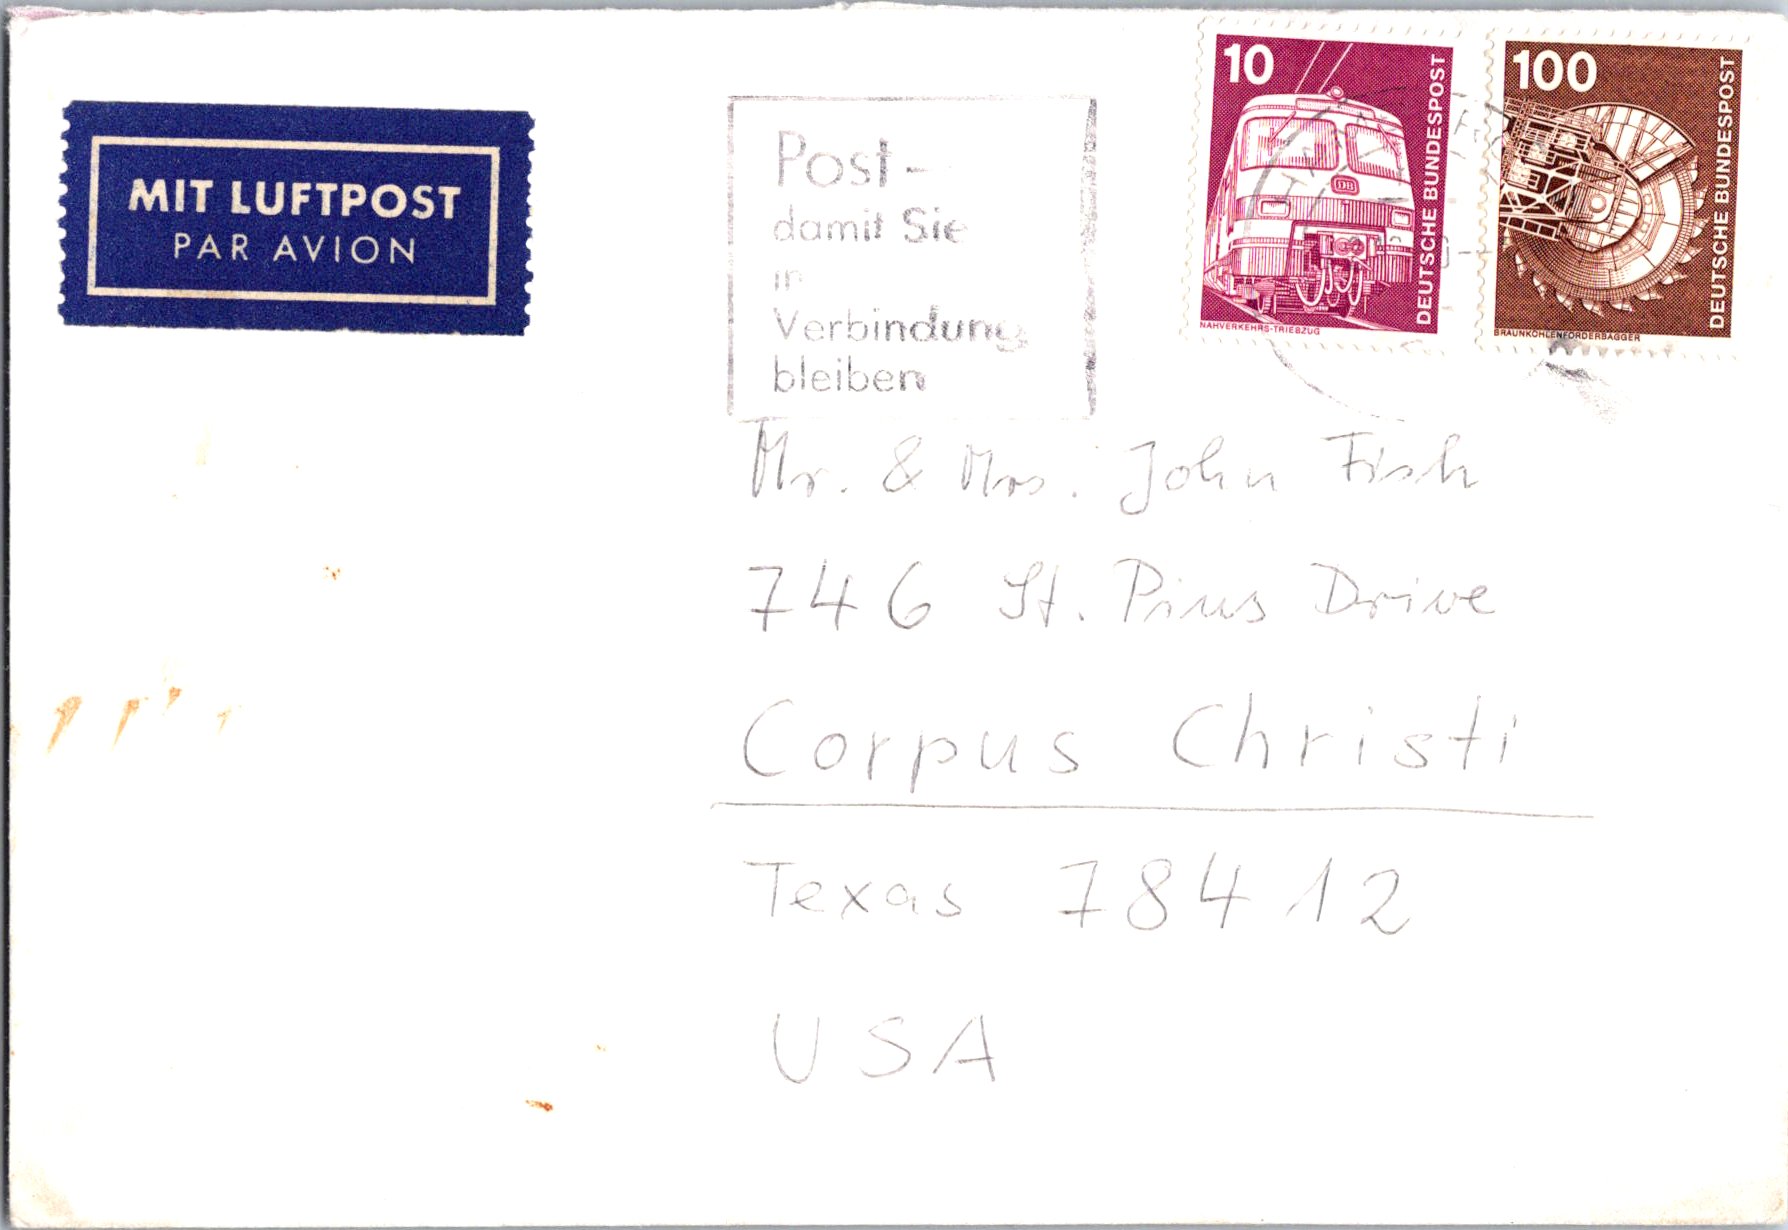 MIT LUFTPOST
PAR AVION
Post-
damit Sie
in
Verbindung
bleiben
10
DEUTSCHE BUNDESPOST
NAHVERKEHRS-TRIEBZUG
DB
100
DEUTSCHE BUNDESPOST
BRAUNKOHLENFÖRDERBAGGER
Mr. & Mrs. John Fish
746 St. Pius Drive
Corpus Christi
Texas 78412
USA